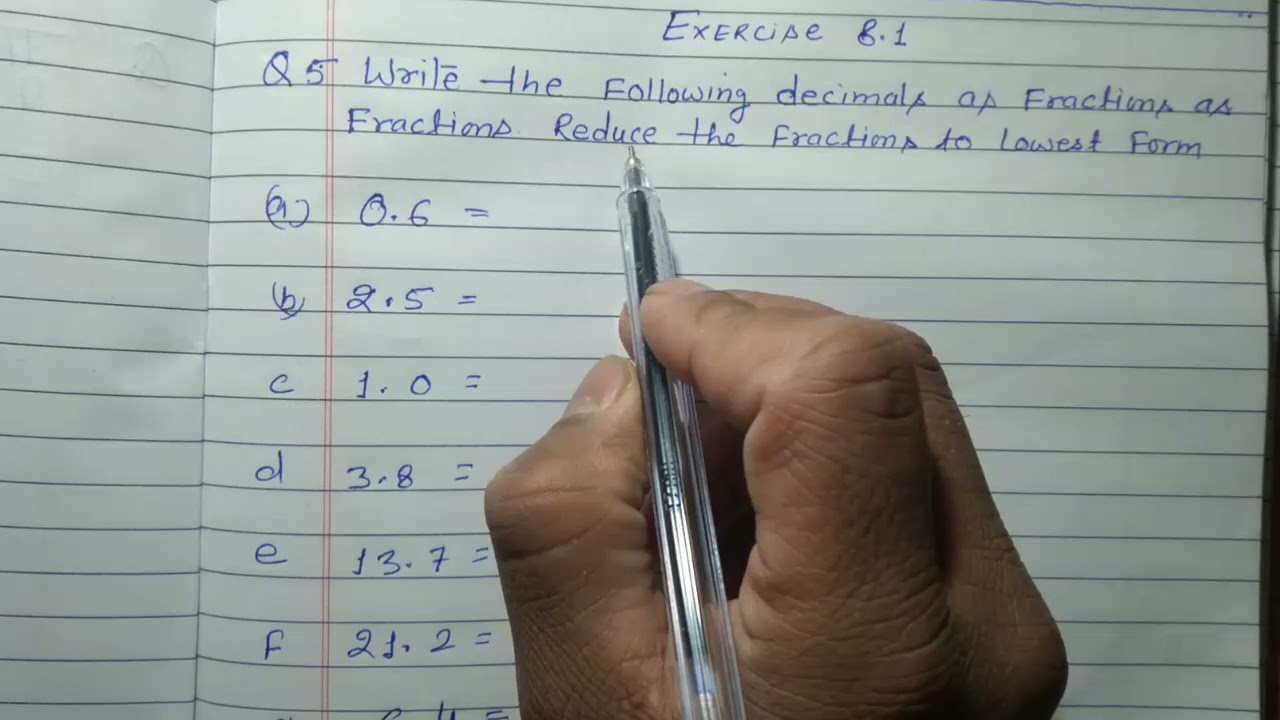 Exercise 8.1
Q 5 Write the Following decimals as Fractions as
Fractions. Reduce the Fractions to Lowest Form
(a) 0.6 =
(b) 2.5 =
c 1.0 =
d 3.8 =
e 13.7 =
F 21.2 =